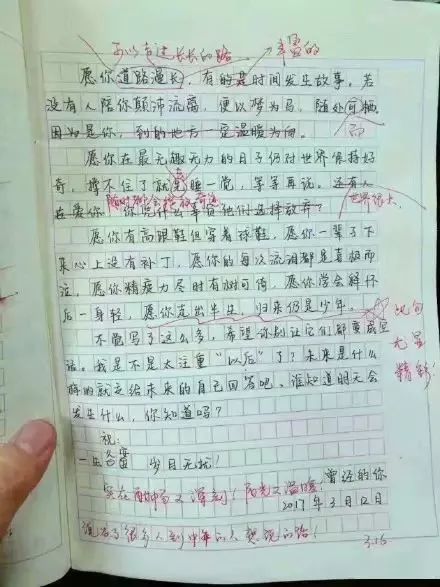 可以走过长长的路 丰富的
愿你道路漫长，有的是时间发生故事。若
没有人陪你颠沛流离，便以梦为马，随处可栖
因为是你，到的地方一定温暖为向。
愿你在最无趣无力的日子仍对世界保持好
奇，撑不住了就先睡一觉，等等再说。还有人
在爱你，你凭什么辜负他们选择放弃？
世界很大
愿你有高跟鞋但穿着球鞋，愿你一辈子下
来心上没有补丁，愿你的每次流泪都是喜极而
泣，愿你精疲力尽时有树可倚，愿你学会释怀
后一身轻，愿你走出半生，归来仍是少年。
此句
不觉写了这么多，希望你别让它们都变成空
尤显
话。我是不是太注重“以后”了？未来是什么
精彩！
样的就交给未来的自己回答吧。谁知道明天会
发生什么，你知道吗？
祝：
一生 岁月无忧！
实在 又深刻！ 又温暖 曾经的你
2017年3月12日
很多人到中年 的路！
3.16